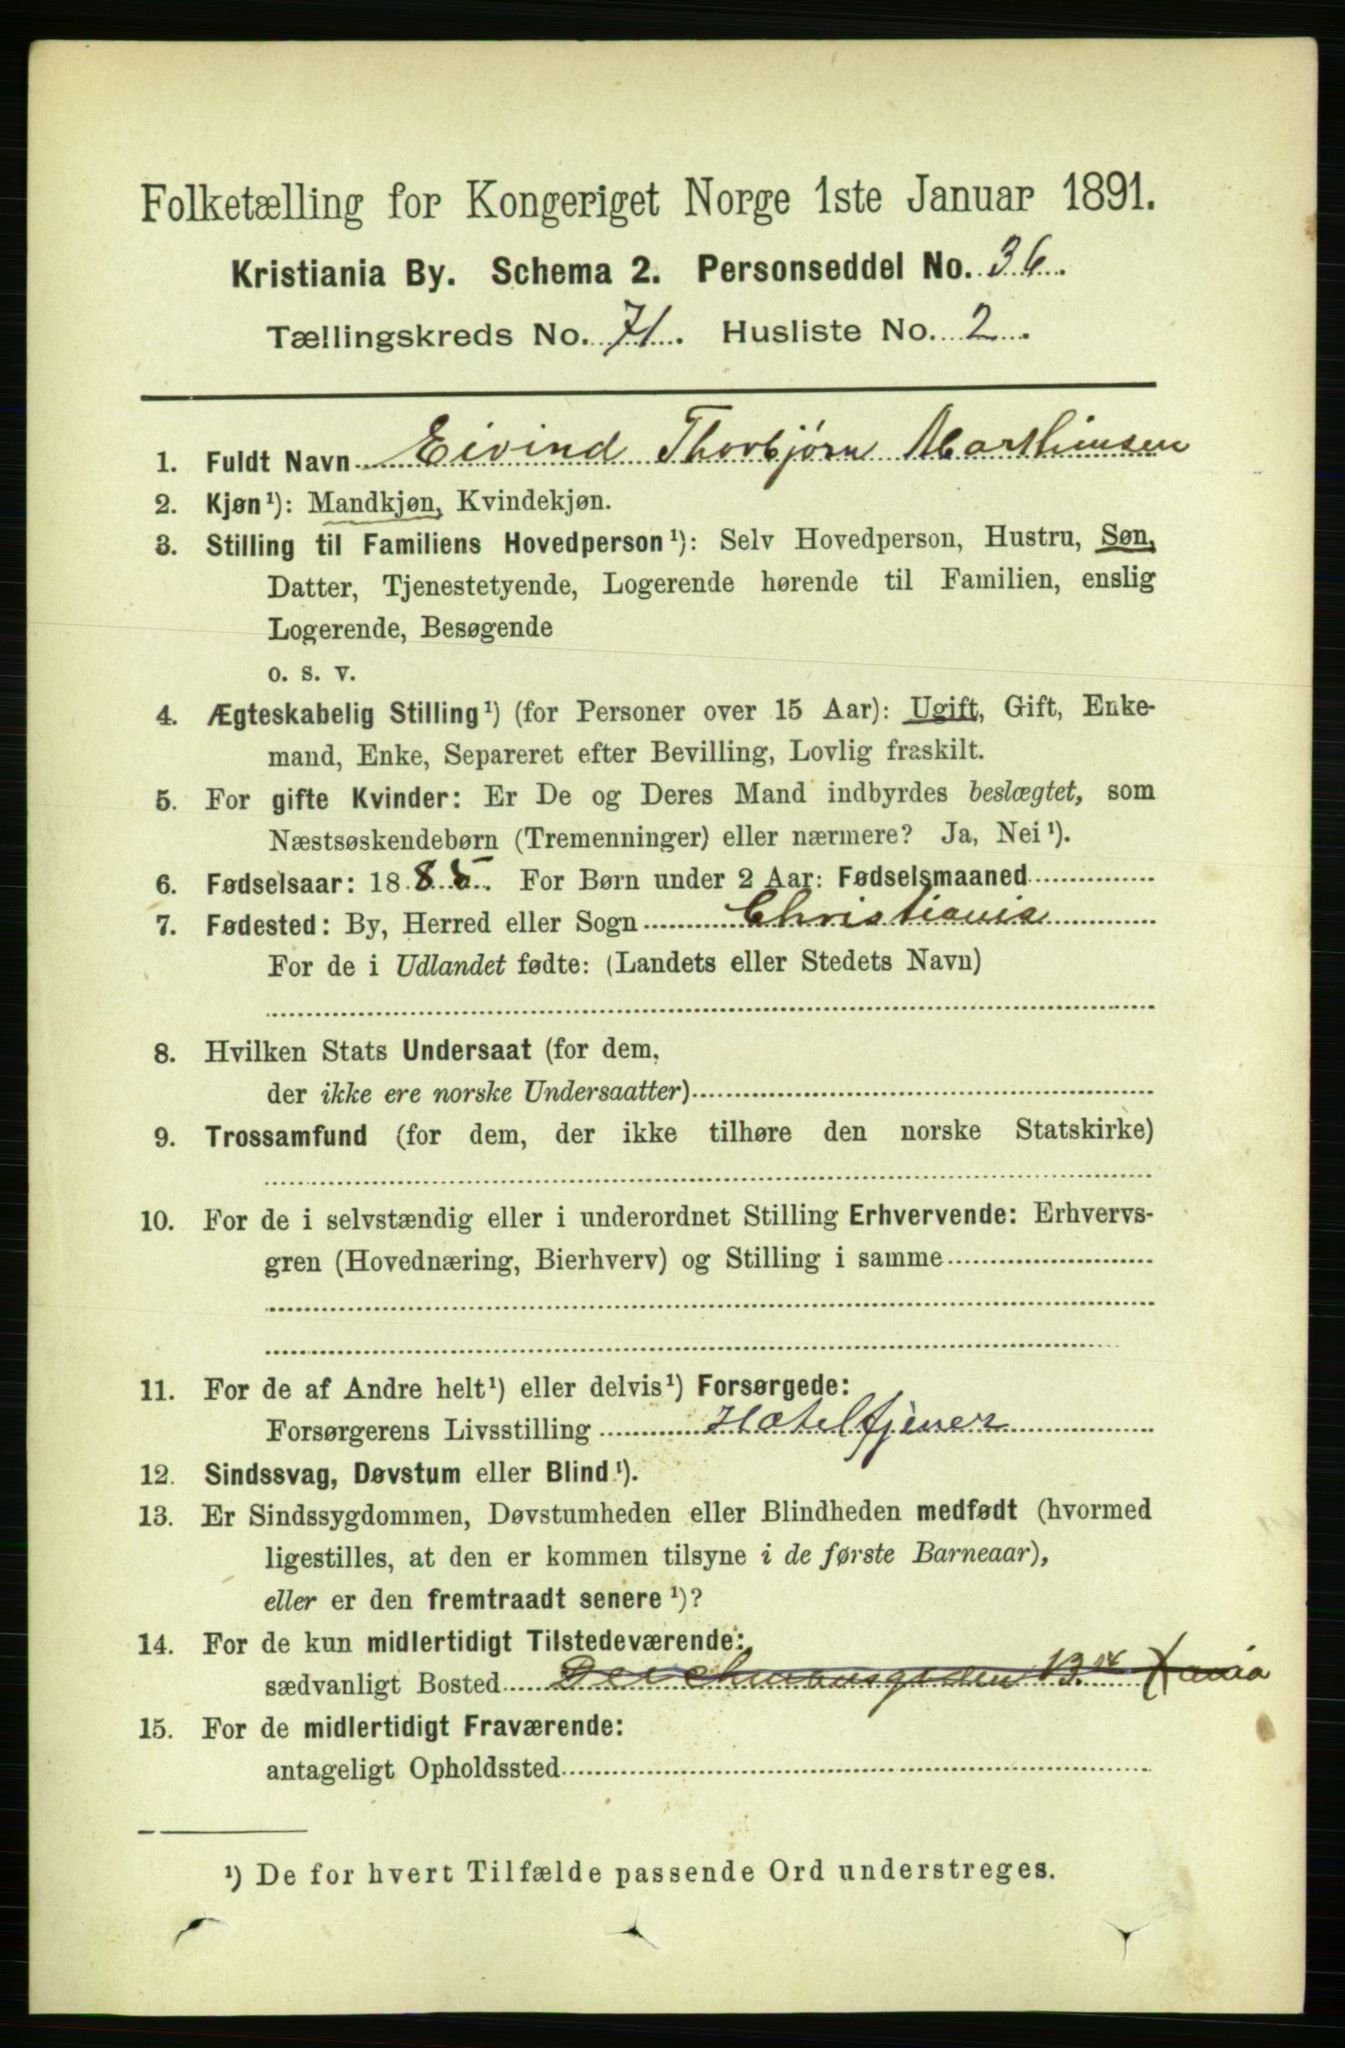 Folketælling for Kongeriget Norge 1ste Januar 1891.
Kristiania By. Schema 2. Personseddel No. 36.
Tællingskreds No. 71. Husliste No. 2.
1. Fuldt Navn Eivind Thorbjørn Marthinsen
2. Kjøn¹): Mandkjøn, Kvindekjøn.
3. Stilling til Familiens Hovedperson¹): Selv Hovedperson, Hustru, Søn,
Datter, Tjenestetyende, Logerende hørende til Familien, enslig
Logerende, Besøgende
o. s. v.
4. Ægteskabelig Stilling¹) (for Personer over 15 Aar): Ugift, Gift, Enke-
mand, Enke, Separeret efter Bevilling, Lovlig fraskilt.
5. For gifte Kvinder: Er De og Deres Mand indbyrdes beslægtet, som
Næstsøskendebørn (Tremenninger) eller nærmere? Ja, Nei¹).
6. Fødselsaar: 188 For Børn under 2 Aar: Fødselsmaaned
7. Fødested: By, Herred eller Sogn Christiania
For de i Udlandet fødte: (Landets eller Stedets Navn)
8. Hvilken Stats Undersaat (for dem,
der ikke ere norske Undersaatter)
9. Trossamfund (for dem, der ikke tilhøre den norske Statskirke)
10. For de i selvstændig eller i underordnet Stilling Erhvervende: Erhvervs-
gren (Hovednæring, Bierhverv) og Stilling i samme
11. For de af Andre helt¹) eller delvis¹) Forsørgede:
Forsørgerens Livsstilling Hoteltjener
12. Sindssvag, Døvstum eller Blind¹).
13. Er Sindssygdommen, Døvstumheden eller Blindheden medfødt (hvormed
ligestilles, at den er kommen tilsyne i de første Barneaar),
eller er den fremtraadt senere¹)?
14. For de kun midlertidigt Tilstedeværende:
sædvanligt Bosted Deichmansgaden 13 Xania
15. For de midlertidigt Fraværende:
antageligt Opholdssted
¹) De for hvert Tilfælde passende Ord understreges.